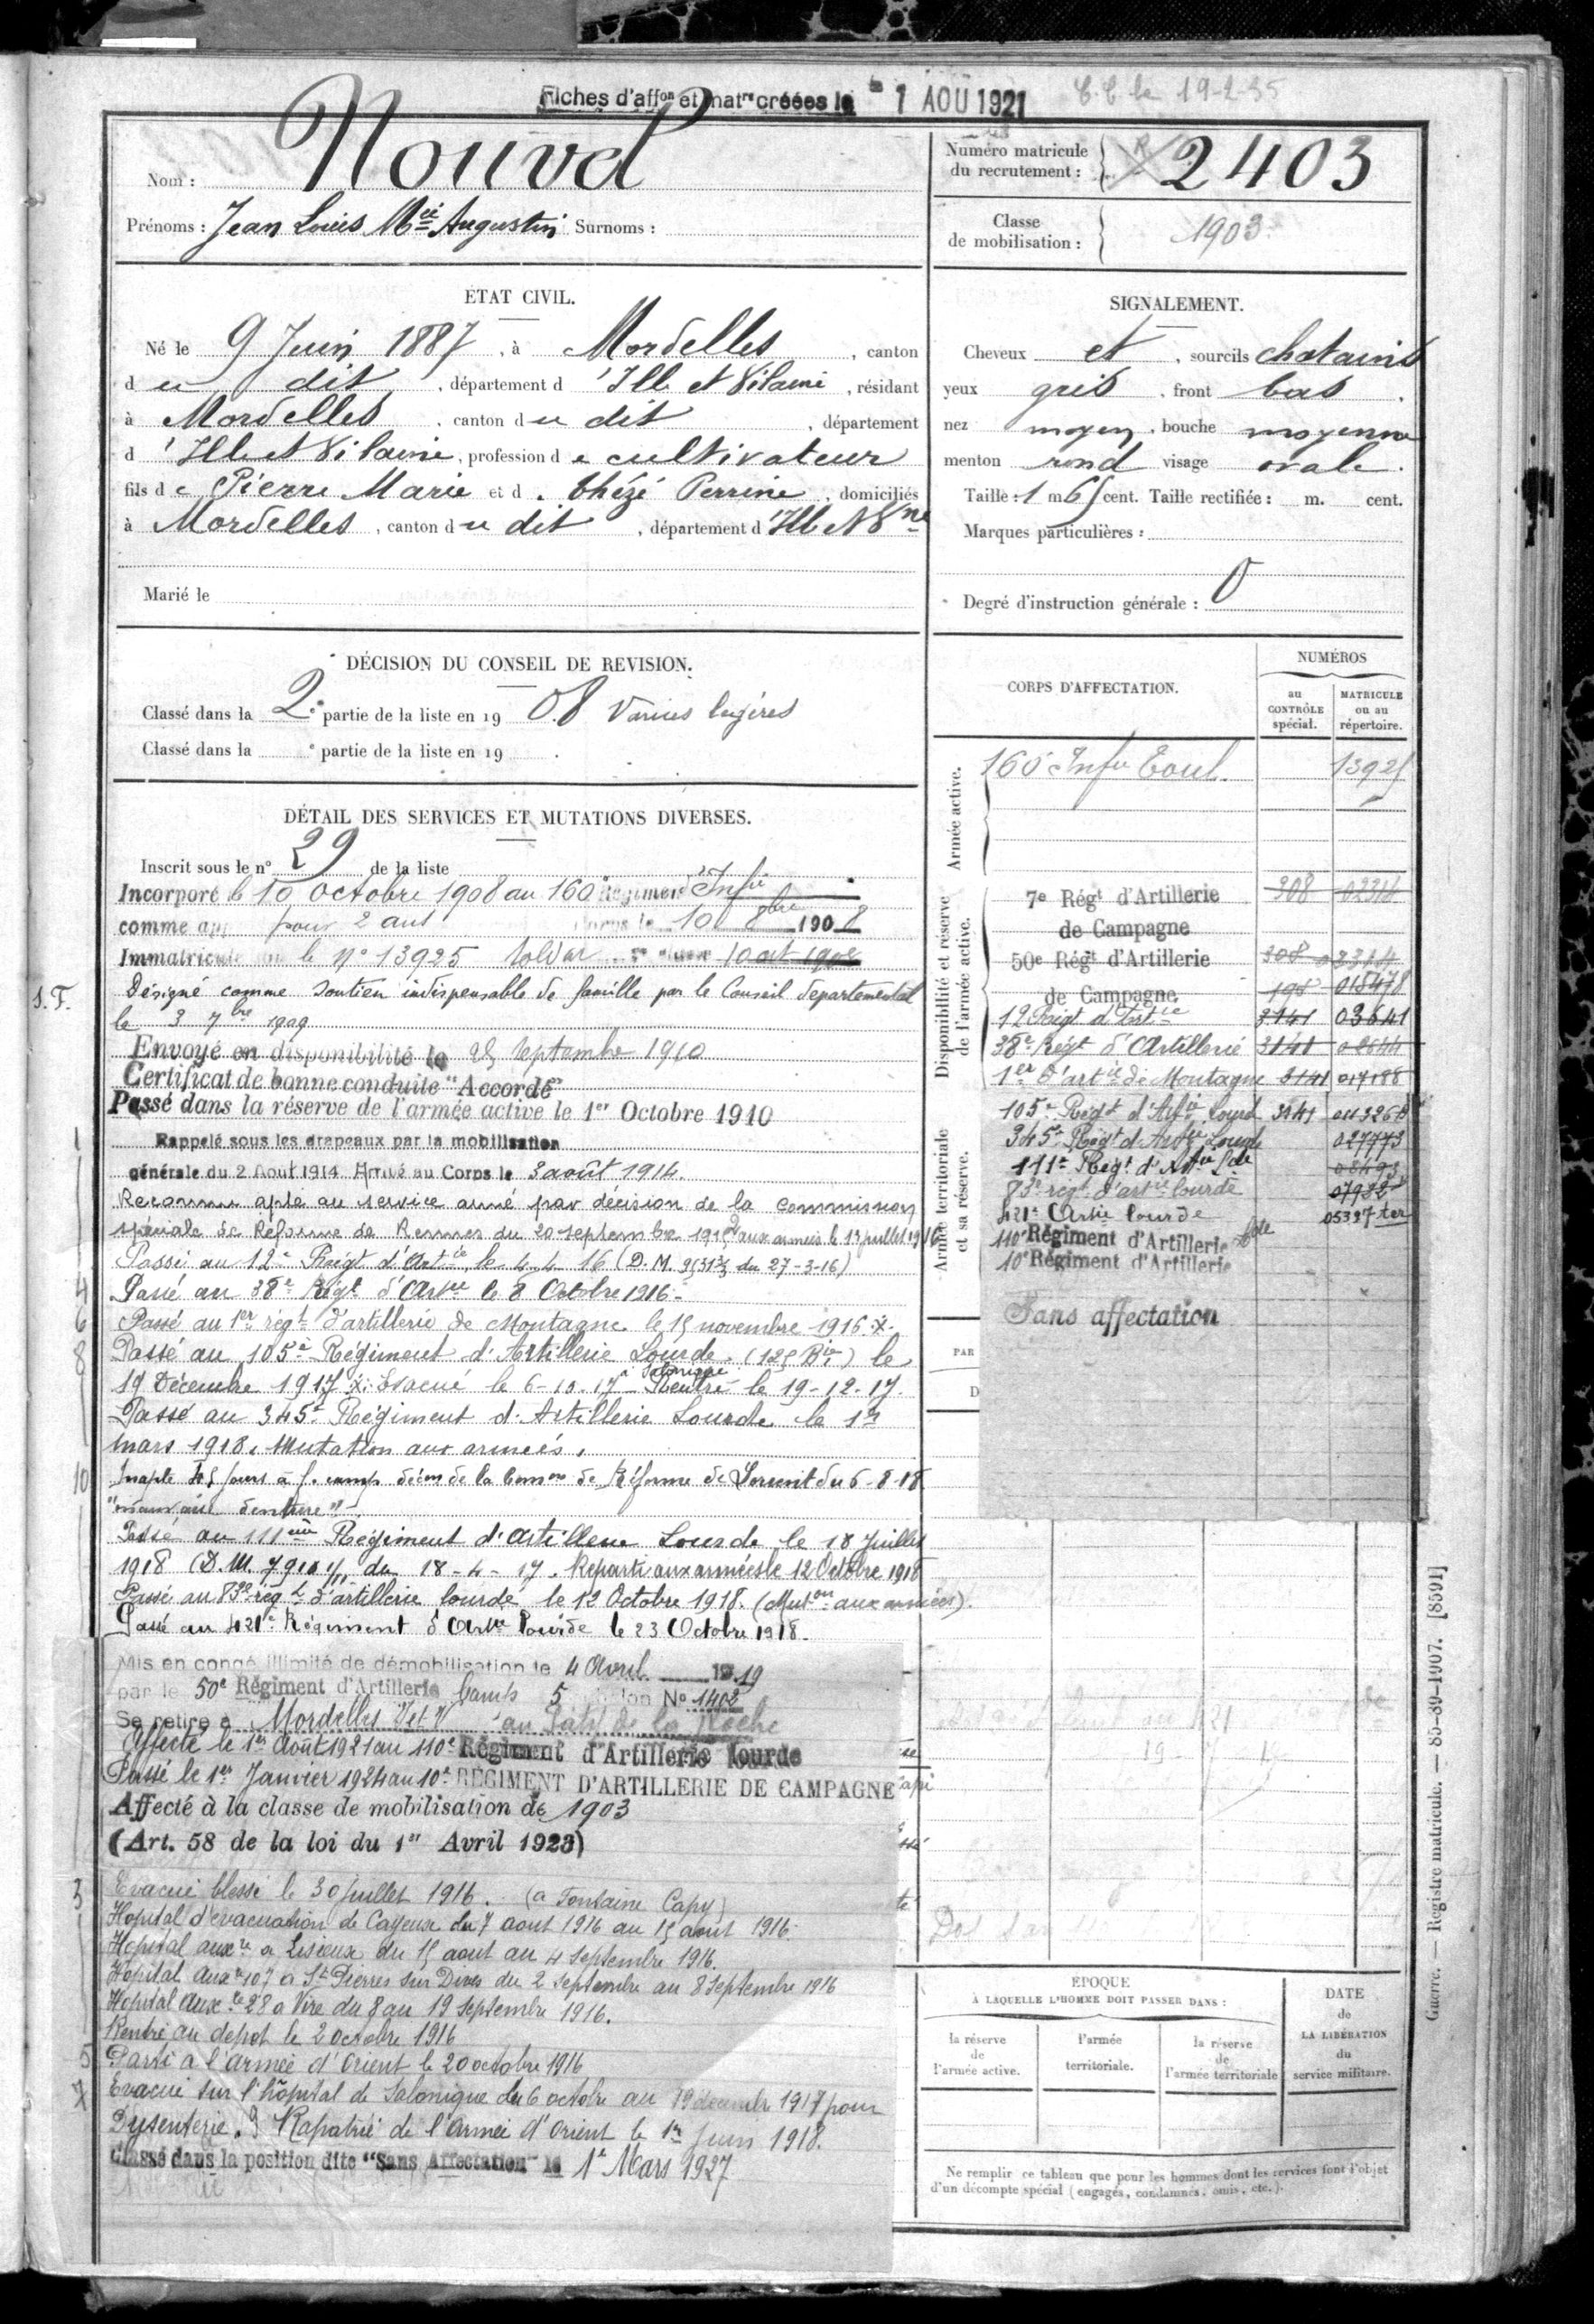 Fiches d'affon et matre créées le 1 AOU 1921
C.C. le 19-2-35
Nom : Nouvel
Prénoms : Jean Louis Mie Augustin Surnoms :
Numéro matricule du recrutement : 2403
Classe de mobilisation : 1903
ETAT CIVIL.
Né le 9 Juin 1887, à Mordelles, canton
du dit, département d'Ille et Vilaine, résidant
à Mordelles, canton du dit, département
d'Ille et Vilaine, profession de cultivateur
fils de Pierre Marie et d. Thézé Perrine, domiciliés
à Mordelles, canton du dit, département d'Ille et Vne
Marié le
SIGNALEMENT.
Cheveux et, sourcils chatains
yeux gris, front bas,
nez moyen, bouche moyenne
menton rond visage ovale.
Taille : 1 m 65 cent. Taille rectifiée : m. cent.
Marques particulières :
Degré d'instruction générale : 0
DÉCISION DU CONSEIL DE REVISION.
Classé dans la 2e partie de la liste en 1908 Varices légères
Classé dans la e partie de la liste en 19 .
DÉTAIL DES SERVICES ET MUTATIONS DIVERSES.
Inscrit sous le n° 29 de la liste
Incorporé le 10 octobre 1908 au 160 Régiment d'Infie
comme pour 2 ans 10 8bre 1908
Immatriculé le N° 13925 Soldat 10 oct 1908
S.F.
Désigné comme soutien indispensable de famille par le Conseil départemental
le 3 7bre 1909
Envoyé en disponibilité le 25 Septembre 1910
Certificat de bonne conduite "Accordé"
Passé dans la réserve de l'armée active le 1er Octobre 1910
1
Rappelé sous les drapeaux par la mobilisation
générale du 2 Aout 1914 Arrivé au Corps le 3 août 1914.
Reconnu apte au service armé par décision de la commission
spéciale de Réforme de Rennes du 20 septembre 191 aux armées le 13 juillet 1916
Passé au 12e Régt d'Artie le 4.4.16 (D.M. du 27-3-16)
4
Passé au 38e Régt d'Artie le 8 Octobre 1916-
6
Passé au 1er régt d'artillerie de Montagne le 15 novembre 1916.x.
8
Passé au 105e Régiment d'Artillerie Lourde (125 Bie) le
19 Décembre 1917 x. Evacué le 6-10.17 à Salonique Rentré le 19-12-17.
Passé au 345e Régiment d'Artillerie Lourde le 1er
mars 1918. Mutation aux armées.
10
Inapte 45 jours à f. camp. décon de la Comon de Réforme de Lorient du 6-8-18
"mauvaise denture"-
Passé au 111eme Régiment d'Artillerie Lourde le 18 Juillet
1918 (D.M. 7910 1/11 du 18-4-17. Reparti aux armées le 12 Octobre 1918
Passé au 83e régt d'artillerie lourde le 12 Octobre 1918. (Muton aux armées).
Passé au 421e Régiment d'Artie Lourde le 23 Octobre 1918.
Mis en congé illimité de démobilisation le 4 Avril 1919
par le 50e Régiment d'Artillerie Camp. 5 échelon No 1402
Se retire à Mordelles I et V au Patis de la Roche
Affecté le 1er Août 1921 au 110e Régiment d'Artillerie lourde
Passé le 1er Janvier 1924 au 10e RÉGIMENT D'ARTILLERIE DE CAMPAGNE
Affecté à la classe de mobilisation de 1903
(Art. 58 de la loi du 1er Avril 1923)
3
Evacué blessé le 30 juillet 1916. (a Fontaine Capy)
Hopital d'évacuation de Cayeux du 7 aout 1916 au 15 aout 1916.
Hopital auxre a Lisieux du 15 aout au 4 septembre 1916.
Hopital auxre 107 a St Pierres sur Dives du 2 septembre au 8 Septembre 1916
Hopital auxre 28 a Vire du 8 au 19 septembre 1916.
Rentré au depot le 2 octobre 1916
5
Parti a l'armée d'Orient le 20 octobre 1916
7
Evacué sur l'hôpital de Salonique du 6 octobre au 19 decembre 1917 pour
Dysenterie. 9 Rapatrié de l'Armée d'Orient le 1er Juin 1918.
Classé dans la position dite "Sans Affectation" le 1er Mars 1927
CORPS D'AFFECTATION.
NUMÉROS
au CONTRÔLE spécial.
MATRICULE ou au répertoire.
Armée active.
160 Infie Toul. 13925
Disponibilité et réserve de l'armée active.
7e Régt d'Artillerie de Campagne 308 02314
50e Régt d'Artillerie de Campagne 308 02314
198 015478
12 Régt d'Artie 3141 03641
38e Régt d'Artillerie 3141 08644
1er d'artie de Montagne 3141 017188
Armée territoriale et sa réserve.
105e Régt d'Artie Lourd 3141
345e Régt d'Artie Lourde 027773
111e Régt d'Artie Lde 08493
83e régt d'artie lourde 07932
421e Artie lourde 05397 ter
110e Régiment d'Artillerie Lde
10e Régiment d'Artillerie
Sans affectation
PAR
D
ÉPOQUE
À LAQUELLE L'HOMME DOIT PASSER DANS :
la réserve de l'armée active.
l'armée territoriale.
la réserve de l'armée territoriale
DATE de LA LIBÉRATION du service militaire.
Ne remplir ce tableau que pour les hommes dont les services font l'objet
d'un décompte spécial (engagés, condamnés, omis, etc.).
Guerre. — Registre matricule. — 85-89-1907. [8591]